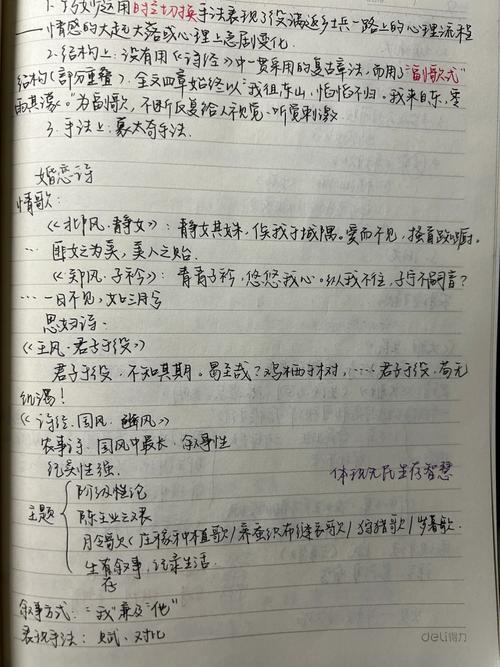 1. 巧妙运用时空切换手法表现了役满返乡士兵一路上的心理流程
——情感的大起大落或心理上急剧变化.
2. 结构上:没有用《诗经》中一贯采用的复沓章法,而用了"副歌式"
结构(部分重叠).全文四章始终以"我徂东山,慆慆不归。我来自东,零
雨其濛。"为副歌,不断反复给人视觉、听觉刺激
3. 手法上:蒙太奇手法.
婚恋诗
情歌:
《邶风·静女》:静女其姝,俟我于城隅。爱而不见,搔首踟蹰.
… 匪女之为美,美人之贻.
《郑风·子衿》:青青子衿,悠悠我心。纵我不往,子宁不嗣音?
… 一日不见,如三月兮
思妇诗.
《王风·君子于役》
君子于役.不知其期。曷至哉?鸡栖于埘,…… 君子于役,苟无
饥渴!
《诗经·国风·豳风》
农事诗.国风中最长.叙事性
纪实性强.
体现先民生存智慧
主题
阶级性论
陈王业之艰
月令歌(庄稼种植歌/养蚕织布缝衣歌/狩猎歌/岁暮歌.
生存叙事,纪录生活.
叙事方式:"我"兼及"他"
表现手法:赋、对比
deli得力